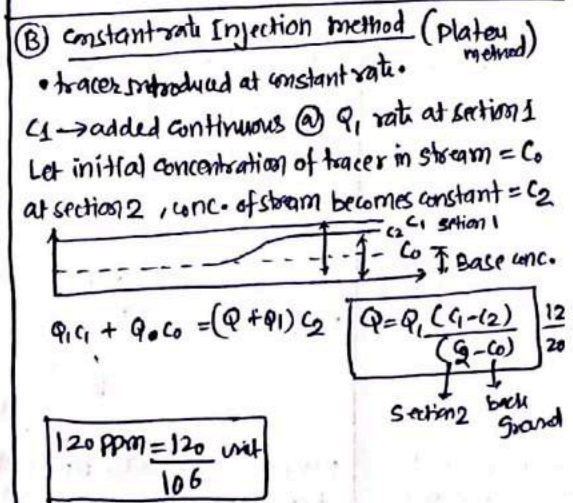 (B) Constant rate Injection method (Plateu method)
• tracer introduced at constant rate.
C1 → added continuous @ Q1 rate at section 1
Let initial concentration of tracer in stream = C0
at section 2, conc. of stream becomes constant = C2
C2 C1 setion 1
C0 Base conc.
Q1C1 + Q.C0 = (Q + Q1) C2
Q = Q1 (C1-C2) / (C2-C0)
12
20
Section2 back
Ground
120 PPM = 120 / 106 unit